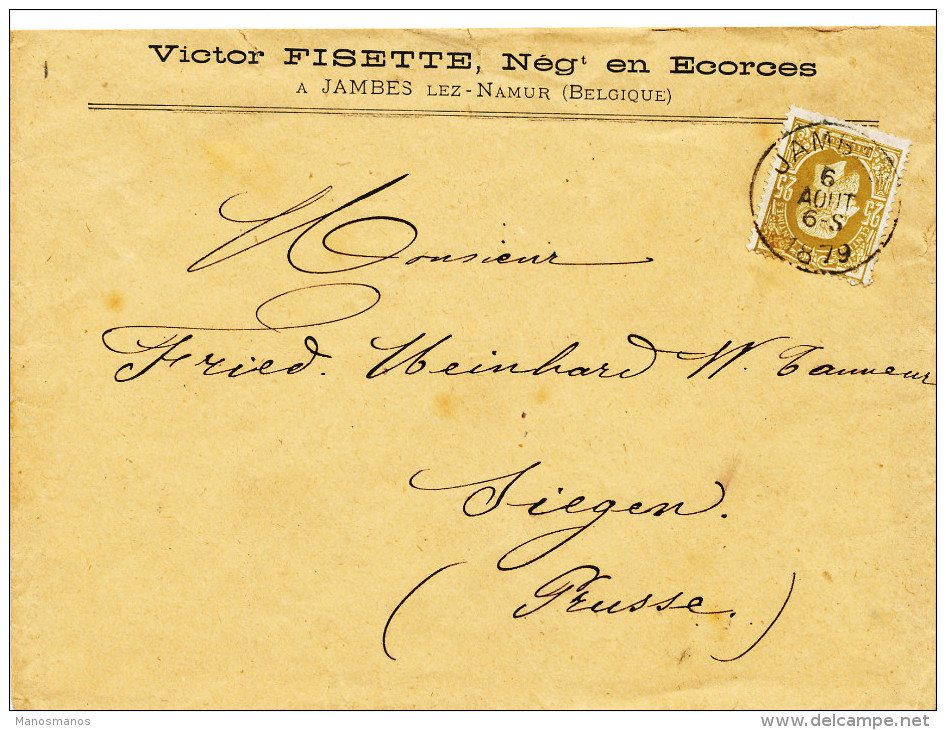 Victor FISETTE, Négt en Ecorces
A JAMBES LEZ-NAMUR (BELGIQUE)
JAMBES
6
AOUT
6-S
1879
25
25
Monsieur
Fried. Weinhard W. Tanneur
Siegen.
(Prusse.)
Manosmanos
delcampe.net